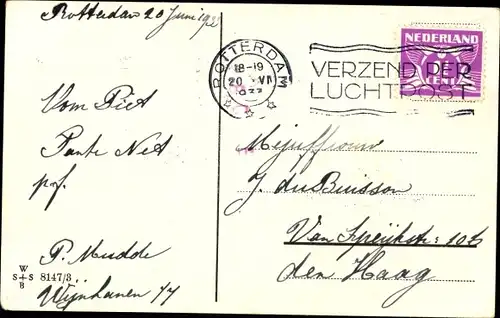 Rotterdam 20 Juni 193
ROTTERDAM
18-19
20 VI
1933
VERZEND PER
LUCHTPOST
NEDERLAND
CENT
Vom Piet
Tante Net
prof.
P. Mudde
Wijnhaven 77
W
S+S 8147/3
B
Mejuffrouw
J. du Buisson
Van Speijkstr: 102
den Haag